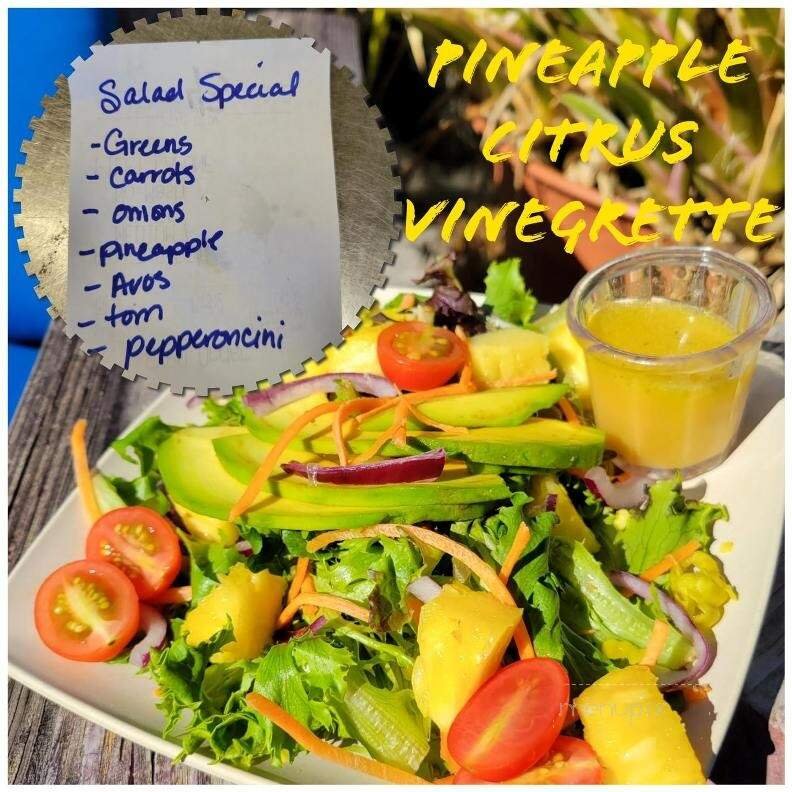 Salad Special
- Greens
- Carrots
- onions
- pineapple
- Avos
- tom
- pepperoncini
PINEAPPLE
CITRUS
VINEGRETTE
menupix